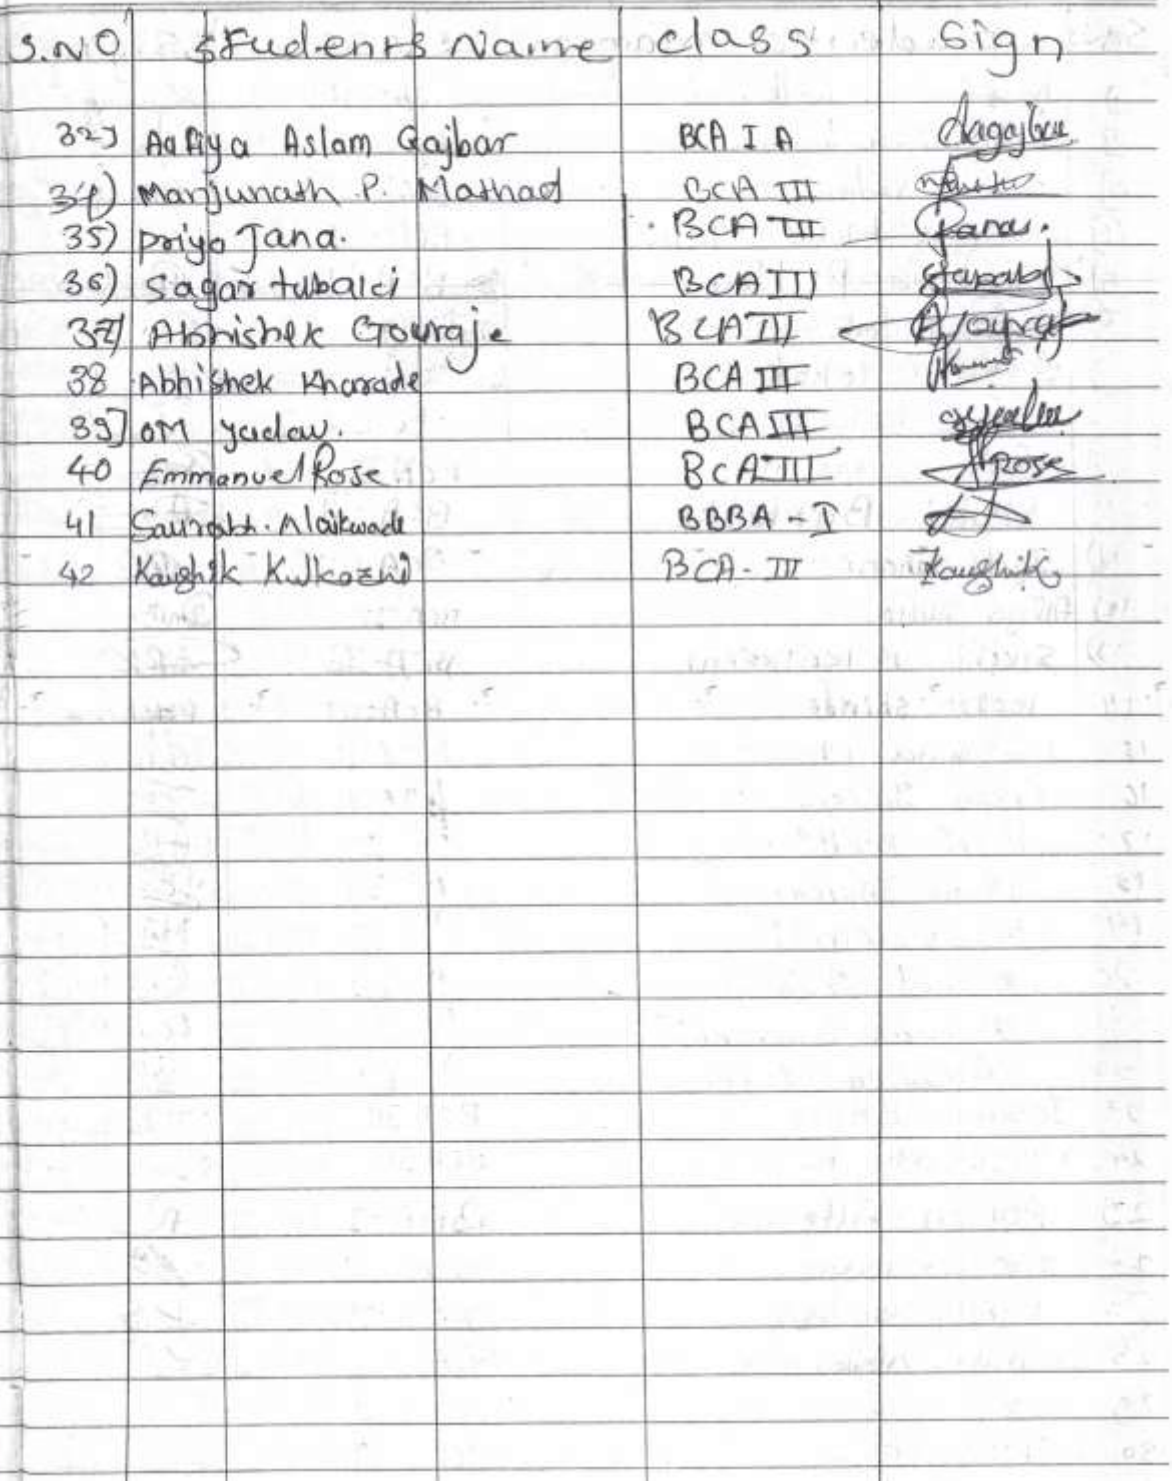 S.NO Students Name class Sign
32) Aafiya Aslam Gajbar BCA I A Aagajbar
34) Manjunath P. Mathad BCA III
35) Priya Jana. BCA III Jana.
36) Sagar tubalci BCA III
37) Abhishek Gouraje BCA III
38 Abhishek Kharade BCA III
39] OM yadav. BCA III
40 Emmanuel Rose BCA III Rose
41 Saurabh. Alaikwade BBBA - I
42 Kaushik Kulkozni BCA - III Kaushik